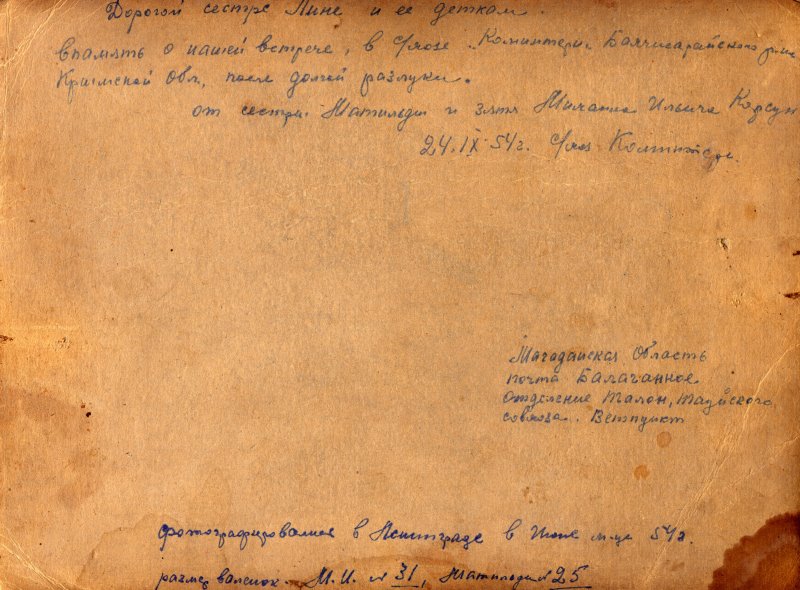 Дорогой сестре Лине и ее деткам.
впамять о нашей встрече, в с/мозе "Коминтерн" Бахчисарайского р-на
Крымской Обл, после долгой разлуки.
от сестры Матильды и зятя Михаила Ильича Корсун
24.IX.54г. с/моз Коминтерн.
Магаданская Область
почта Балаганное
отделение Талон, Тауйского
совхоза. Ветпункт
фотографировались в Ленинграде в Июне м-це 54г.
размер валенок. М.И. № 31, Матильды № 25